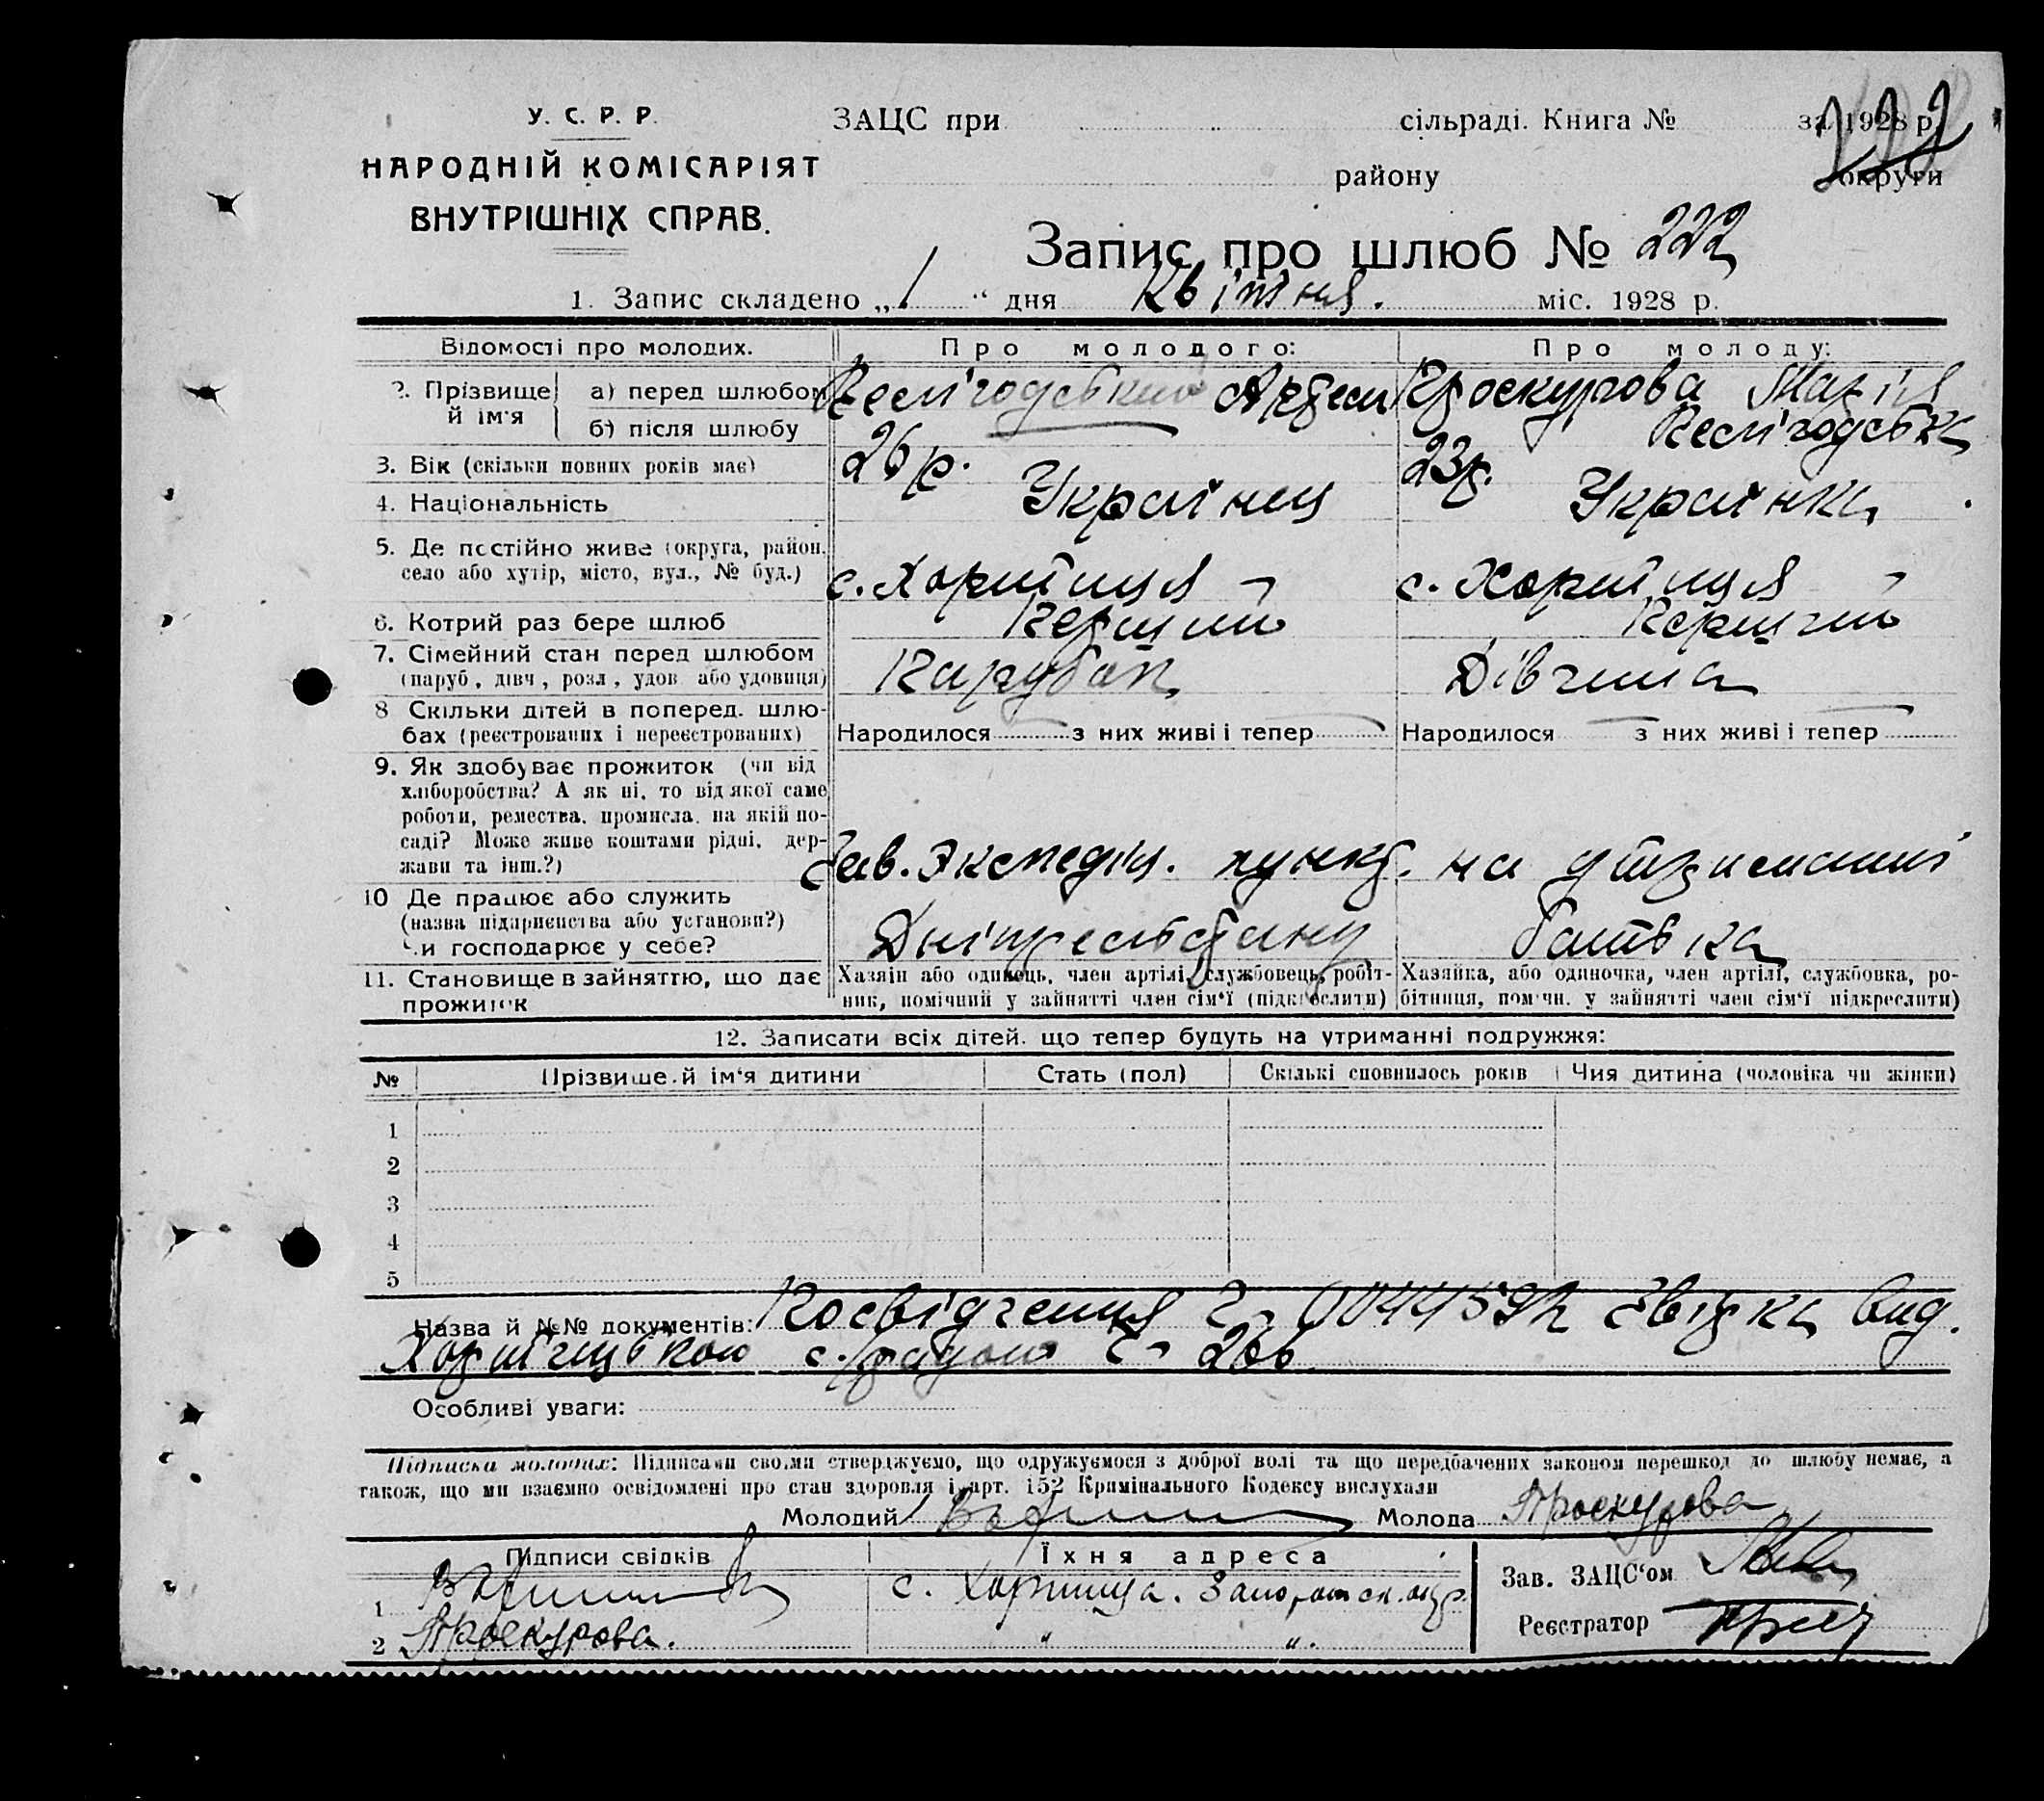 У. С. Р. Р.
НАРОДНІЙ КОМІСАРІЯТ
ВНУТРІШНІХ СПРАВ.
ЗАЦС при сільраді. Книга № за 1928 р.
району округи
Запис про шлюб № 222
1. Запис складено „1“ дня Квітня. міс. 1928 р.
Відомості про молодих. Про молодого: Про молоду:
2. Прізвище й ім'я
а) перед шлюбом Артем Проскурова Марія
б) після шлюбу
3. Вік (скільки повних років має) 26 р. 23 р.
4. Національність Українец Українка
5. Де постійно живе (округа, район,
село або хутір, місто, вул., № буд.) с. Хортиця с. Хортиця
6. Котрий раз бере шлюб Перший Перший
7. Сімейний стан перед шлюбом
(паруб, дівч, розл, удов або удовиця) Парубок Дівчина
8 Скільки дітей в поперед. шлю-
бах (реєстрованих і нереєстрованих) Народилося з них живі і тепер Народилося з них живі і тепер
9. Як здобуває прожиток (чи від
хліборобства? А як ні, то від якої саме
роботи, ремества, промисла, на якій по-
саді? Може живе коштами рідні, дер-
жави та інш.?) Зав. Экспедіц. пункт. на утриманні
10 Де працює або служить
(назва підприємства або установи?)
Чи господарює у себе? Дніпрельстану батька
11. Становище в зайняттю, що дає
прожиток
Хазяїн або одинець, член артілі, службовець, робіт-
ник, помічний у зайнятті член сім'ї (підкреслити)
Хазяйка, або одиночка, член артілі, службовка, ро-
бітниця, помічн. у зайнятті член сім'ї підкреслити)
12. Записати всіх дітей, що тепер будуть на утриманні подружжя:
№ Прізвище й ім'я дитини Стать (пол) Скількі сповнилось років Чия дитина (чоловіка чи жінки)
1
2
3
4
5
Назва й №№ документів: Посвідчення Ч- Звідка Вид.
Хортицькою с/радою Ч- 266
Особливі уваги:
Підписка молодих: Підписами своїми стверджуємо, що одружуємося з доброї волі та що передбачених законом перешкод до шлюбу немає, а
також, що ми взаємно освідомлені про стан здоровля і арт. 152 Кримінального Кодексу вислухали
Молодий Молода Проскурова
Підписи свідків Їхня адреса
1 с. Хортица. Запорожск. окр.
2 Проскурова. " ".
Зав. ЗАЦС'ом
Реєстратор